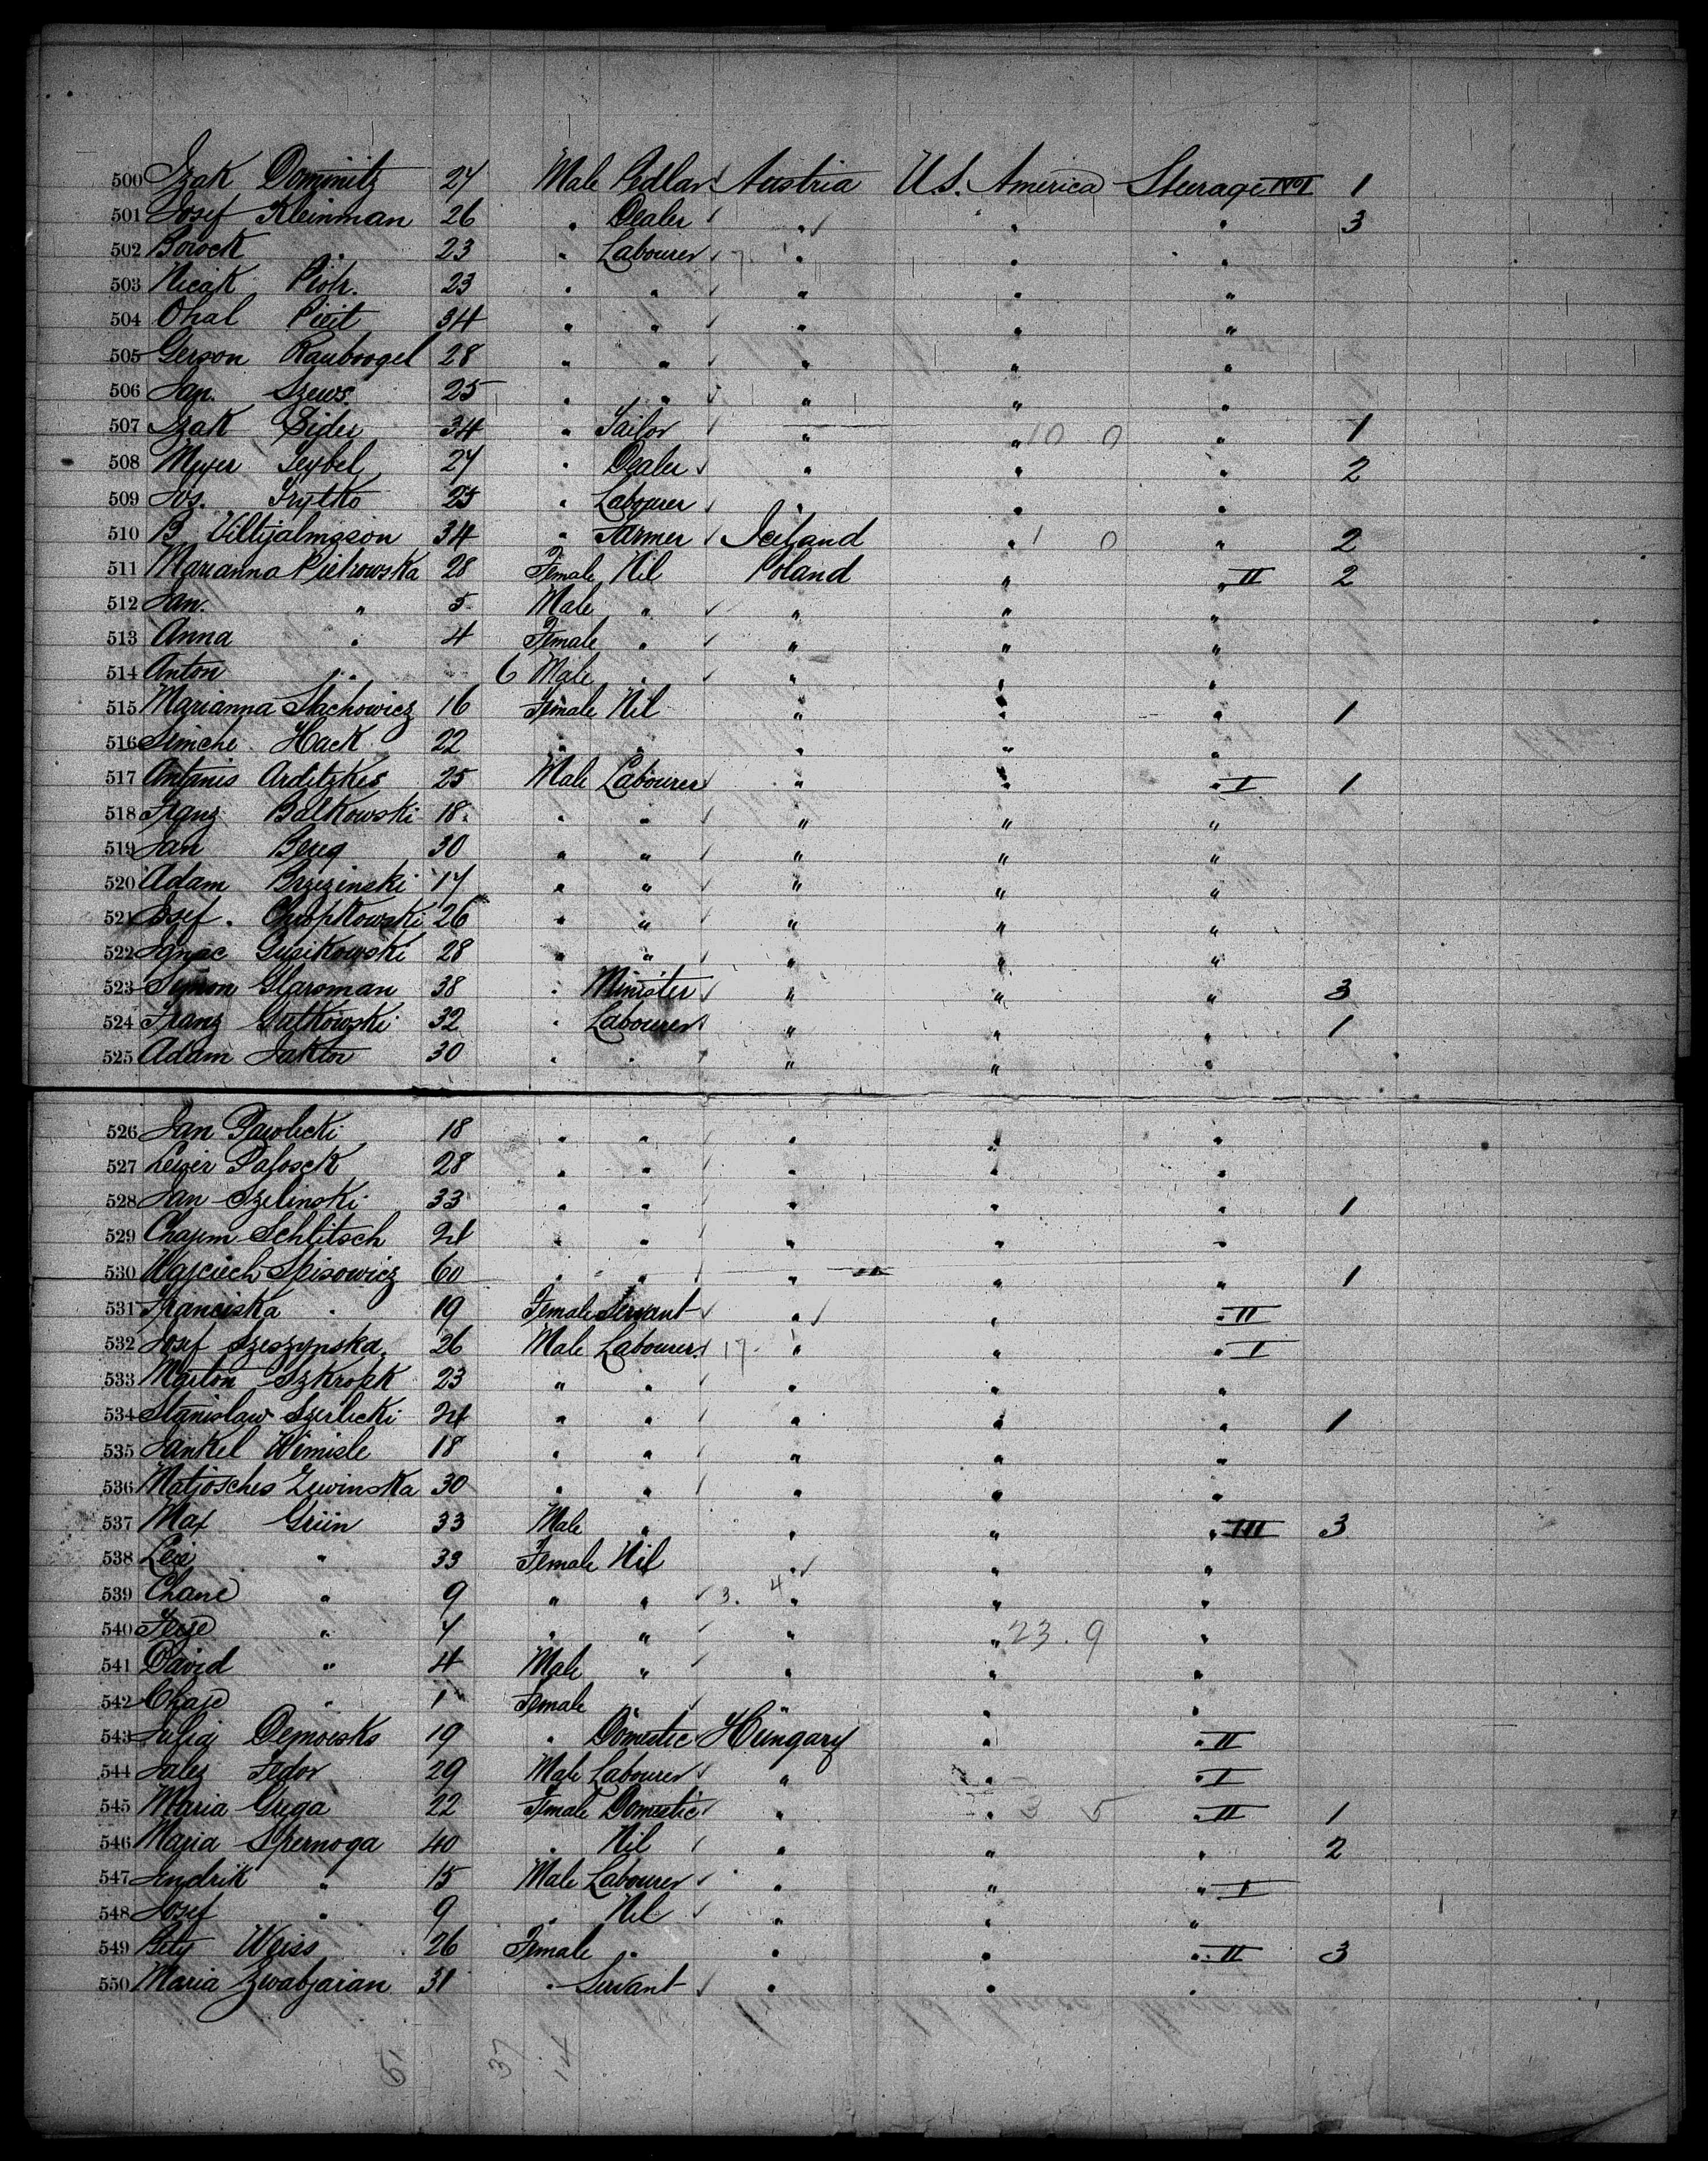 500 Izak Dominitz 24 Male Pedlar Austria U.S. America Steerage No I 1
501 Josef Kleinman 26 " Dealer " " " 3
502 Borock " 23 " Labourer 17 1 " " "
503 Nicak Piotr. 23 " " " " "
504 Ohal Pieit 34 " " " " "
505 Gerson Rauboogel 28 " " " " "
506 Jan. Szews. 25 " " " " "
507 Izak Sider 34 " Tailor " " 10 0 " 1
508 Meyer Seybel 24 " Dealer " " " 2
509 Jos. Frytko 25 " Labourer " " "
510 B Viltijalmsson 34 " Farmer Iceland " 1 0 " 2
511 Marianna Pietrowska 28 Female Nil Poland " " II 2
512 Jan. " 5 Male " " " "
513 Anna " 4 Female " " " "
514 Anton " 6 Male " " " "
515 Marianna Stachowicz 16 Female Nil " " " 1
516 Simche Hack 22 " " " " "
517 Antanis Arditzkes 25 Male Labourer " " " I 1
518 Franz Balkowski 18. " " " " "
519 Jan Bereg 30 " " " " "
520 Adam Brzezinski 17 " " " " "
521 Josef. Czopkowski 26 " " " " "
522 Ignac Gusikowski 28 " " " " "
523 Symon Glaroman 38 " Minister " " " 3
524 Franz Gutkowski 32 " Labourer " " " 1
525 Adam Jaktor 30 " " " " "
526 Jan Pawlicki 18 " " " " "
527 Leizer Pasosck 28 " " " " "
528 Jan Szelinski 33 " " " " " 1
529 Chaim Schlitsch 24 " " " " "
530 Wajciech Spisowicz 60 " " " " " 1
531 Franciska " 19 Female Servant " " " II
532 Josef Szeszynska 26 Male Labourer 17 " " " I
533 Marton Szkropk 23 " " " " "
534 Stanislaw Szerlicki 24 " " " " " 1
535 Jankel Wimisle 18 " " " " "
536 Matjosches Zewinska 30 " " " " "
537 Max Grün 33 Male " " " " III 3
538 Leie " 33 Female Nil " " "
539 Chane " 9 " " 3. 4 " " "
540 Feige " 7 " " " " 23. 9 "
541 David " 4 Male " " " "
542 Chaje " 1 Female " " "
543 Julia Demoesks 19 " Domestic Hungary " " II
544 Jalez Fedor 29 Male Labourer " " " I
545 Maria Grega 22 Female Domestic " " 3 5 " II 1
546 Maria Spernoga 40 " Nil " " " 2
547 Jendrik " 15 Male Labourer " " " I
548 Josef " 9 " Nil " " "
549 Bety Weiss 26 Female " " " " II 3
550 Maria Zwabjarian 31 " Servant " " "
37 14